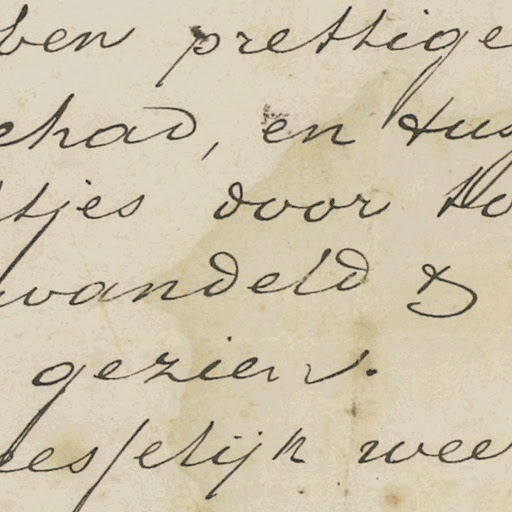 ben prettige
ehad, en tus
tjes door to
wandeld &
gezien.
eesselijk wee